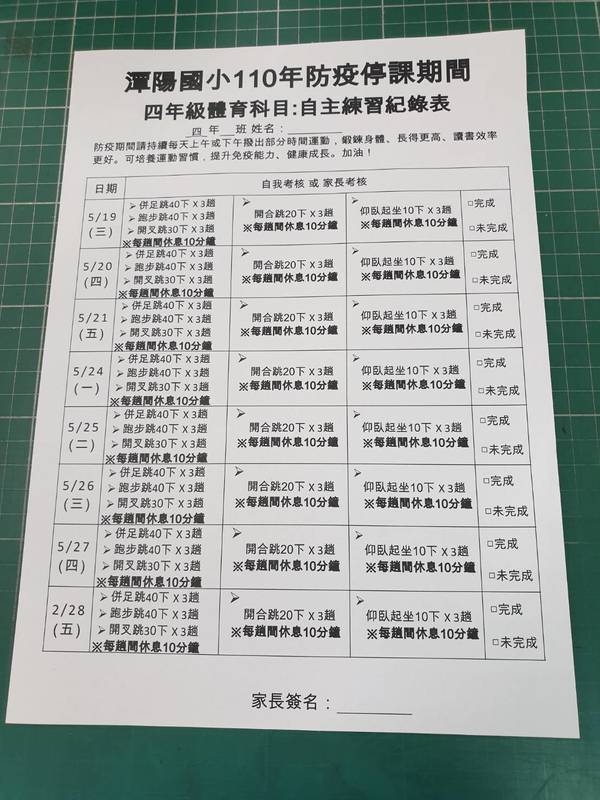 潭陽國小110年防疫停課期間
四年級體育科目:自主練習紀錄表
四 年___班 姓名：________
防疫期間請持續每天上午或下午撥出部分時間運動，鍛鍊身體、長得更高、讀書效率
更好。可培養運動習慣，提升免疫能力、健康成長。加油！
日期 自我考核 或 家長考核
5/19
(三)
➢ 併足跳40下 X 3趟
➢ 跑步跳40下 X 3趟
➢ 開叉跳30下 X 3趟
※每趟間休息10分鐘
➢
開合跳20下 X 3趟
※每趟間休息10分鐘
➢
仰臥起坐10下 X 3趟
※每趟間休息10分鐘
□完成
□未完成
5/20
(四)
➢ 併足跳40下 X 3趟
➢ 跑步跳40下 X 3趟
➢ 開叉跳30下 X 3趟
※每趟間休息10分鐘
➢
開合跳20下 X 3趟
※每趟間休息10分鐘
➢
仰臥起坐10下 X 3趟
※每趟間休息10分鐘
□完成
□未完成
5/21
(五)
➢ 併足跳40下 X 3趟
➢ 跑步跳40下 X 3趟
➢ 開叉跳30下 X 3趟
※每趟間休息10分鐘
➢
開合跳20下 X 3趟
※每趟間休息10分鐘
➢
仰臥起坐10下 X 3趟
※每趟間休息10分鐘
□完成
□未完成
5/24
(一)
➢ 併足跳40下 X 3趟
➢ 跑步跳40下 X 3趟
➢ 開叉跳30下 X 3趟
※每趟間休息10分鐘
➢
開合跳20下 X 3趟
※每趟間休息10分鐘
➢
仰臥起坐10下 X 3趟
※每趟間休息10分鐘
□完成
□未完成
5/25
(二)
➢ 併足跳40下 X 3趟
➢ 跑步跳40下 X 3趟
➢ 開叉跳30下 X 3趟
※每趟間休息10分鐘
➢
開合跳20下 X 3趟
※每趟間休息10分鐘
➢
仰臥起坐10下 X 3趟
※每趟間休息10分鐘
□完成
□未完成
5/26
(三)
➢ 併足跳40下 X 3趟
➢ 跑步跳40下 X 3趟
➢ 開叉跳30下 X 3趟
※每趟間休息10分鐘
➢
開合跳20下 X 3趟
※每趟間休息10分鐘
➢
仰臥起坐10下 X 3趟
※每趟間休息10分鐘
□完成
□未完成
5/27
(四)
➢ 併足跳40下 X 3趟
➢ 跑步跳40下 X 3趟
➢ 開叉跳30下 X 3趟
※每趟間休息10分鐘
➢
開合跳20下 X 3趟
※每趟間休息10分鐘
➢
仰臥起坐10下 X 3趟
※每趟間休息10分鐘
□完成
□未完成
2/28
(五)
➢ 併足跳40下 X 3趟
➢ 跑步跳40下 X 3趟
➢ 開叉跳30下 X 3趟
※每趟間休息10分鐘
➢
開合跳20下 X 3趟
※每趟間休息10分鐘
➢
仰臥起坐10下 X 3趟
※每趟間休息10分鐘
□完成
□未完成
家長簽名：________